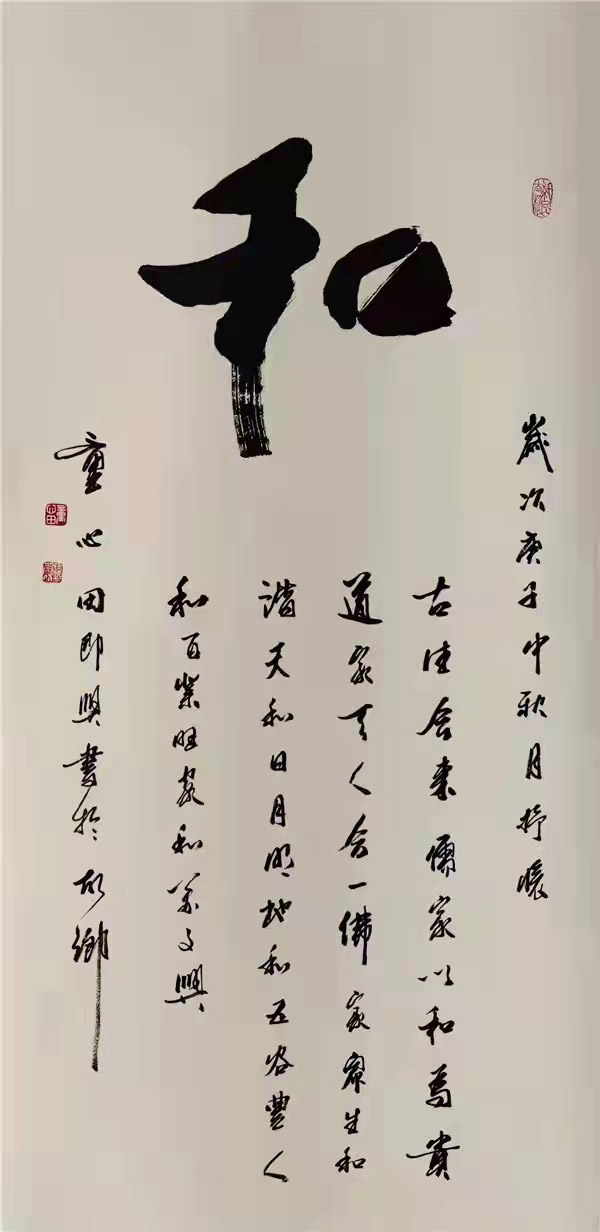 和
歲次庚子中秋月抒懷
古往今来儒家以和為貴
道家天人合一佛家眾生和
諧天和日月明地和五谷豐人
和百業旺家和萬事興
童心田即興書於故鄉